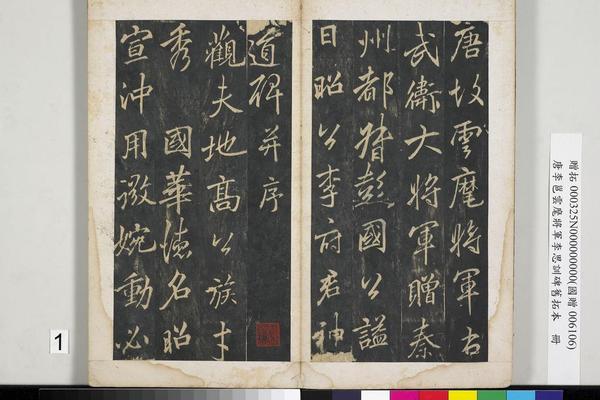 唐故雲麾將軍右
武衛大將軍贈秦
州都督彭國公謚
曰昭公李府君神
道碑并序
觀夫地高公族才
秀 國華德名昭
宣沖用微婉動必
贈拓 000325N000000000(國贈 006106)
唐李邕雲麾將軍李思訓碑舊拓本 冊
1